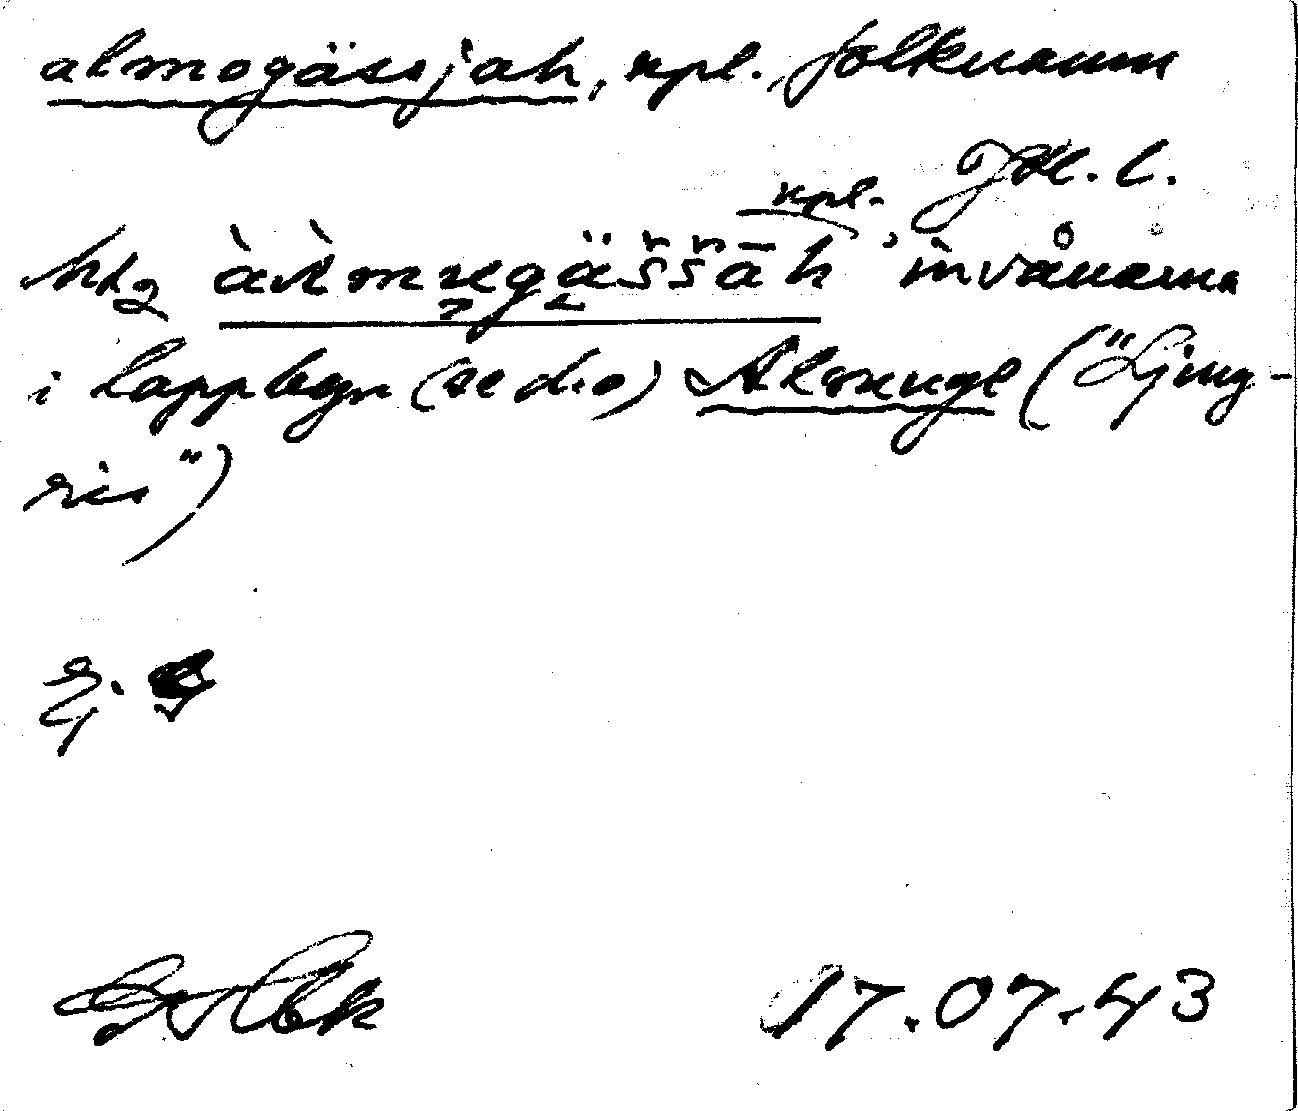 almogässjah, npl. folknamn
Jkl. l.
npl.
àlmegässāh' invånarna
i lappbyn (        ) Almuge ("Ljung-
ris")
17.07.43